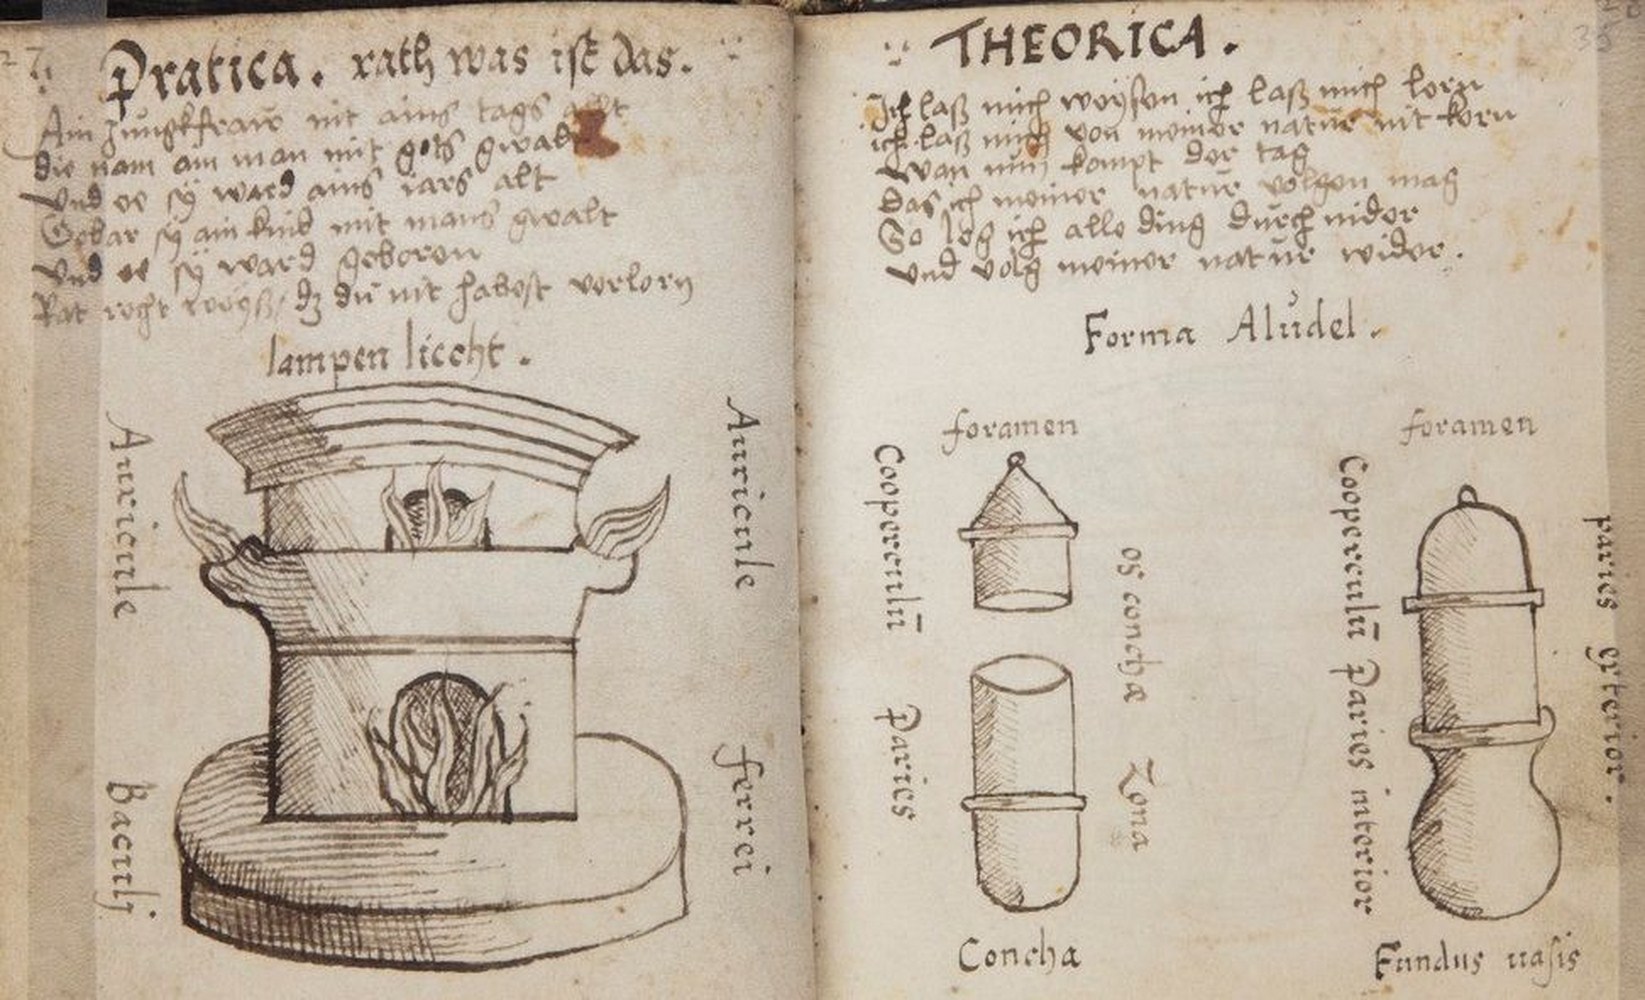 27
Pratica. rath was ist das.
Ain Jungkfraw nit ains tags alt
die nam ain man mit gots gwalt
Und ee sy ward ains iars alt
Gebar sy ain kind mit mans gwalt
Und ee sy ward geboren
Rat recht dz du nit habest verlorn
lampen liecht.
Auricule
Auricule
Baculj
ferrei
THEORICA.
Ich laß mich weysen ich laß mich lern
ich laß mich von meiner natur nit kern
Wan nun kompt der tag
Das ich meiner natur volgen mag
So leg ich alle ding durch nider
und volg meiner natur wider.
Forma Alŭdel.
foramen
foramen
Cooperculū
Paries
os conchæ
Zona
Cooperculū
Paries interior
paries exterior.
Concha
Fundus uasis